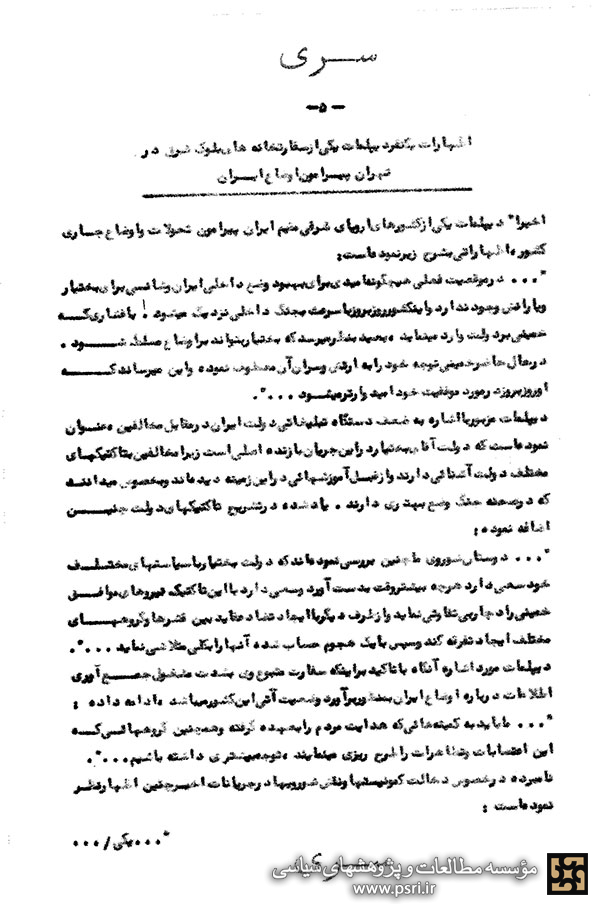 سـری
-۵-
اظهارات یکنفر دیپلمات یکی از سفارتخانه های بلوک شرق در
تهران پیرامون اوضاع ایران
اخیرا" دیپلمات یکی از کشورهای اروپای شرقی مقیم ایران پیرامون تحولات و اوضاع جاری
کشور ، اظهاراتی بشرح زیر نموده است:
"... در موقعیت فعلی هیچگونه امیدی برای بهبود وضع داخلی ایران و شانسی برای بختیار
و یا رانش وجود ندارد و اینکشور روز بروز با سرعت بجنگ داخلی نزدیک میشود ! با فشاری که
خمینی بر دولت وارد مینماید ، بعید بنظر میرسد که بختیار بتواند بر اوضاع مسلط شود .
در حال حاضر خمینی توجه خود را به ارتش و سران آن معطوف نموده و این میرساند که
او روز بروز در مورد موفقیت خود امیدوارتر میشود ...".
دیپلمات مزبور با اشاره به ضعف دستگاه تبلیغاتی دولت ایران در مقابل مخالفین ، عنوان
نموده است که دولت آقای بختیار در این جریان بازنده اصلی است زیرا مخالفین بتاکتیکهای
مختلف دولت آشنائی دارند و از قبل آموزشهائی در این زمینه دیده اند و بخصوص میدانند
که در صحنه جنگ وضع بهتری دارند . یاد شده در تشریح تاکتیکهای دولت چنین
اضافه نموده :
"... دوستان شوروی ما چنین بررسی نموده اند که دولت بختیار با سیاستهای مختلف
خود سعی دارد هرچه بیشتر وقت بدست آورد و سعی دارد با این تاکتیک نیروهای موافق
خمینی را دچار بی تفاوتی نماید و از طرف دیگر با ایجاد تضاد عقاید بین قشرها و گروههای
مختلف ایجاد تفرقه کند و سپس با یک هجوم حساب شده آنها را بکلی متلاشی نماید ...".
دیپلمات مورد اشاره آنگاه با تاکید بر اینکه سفارت متبوع وی بشدت مشغول جمع آوری
اطلاعات درباره اوضاع ایران بمنظور برآورد وضعیت آتی این کشور میباشد ، ادامه داده :
"... ما باید به کمیته هائی که هدایت مردم را بعهده گرفته و همچنین گروههائی که
این اعتصابات و تظاهرات را طرح ریزی مینمایند ، توجه بیشتری داشته باشیم...".
نامبرده در خصوص دخالت کمونیستها و نقش شورویها در جریانات اخیر چنین اظهارنظر
نموده است :
"... یکی / ...
سـری
مؤسسه مطالعات و پژوهشهای سیاسی
www.psri.ir